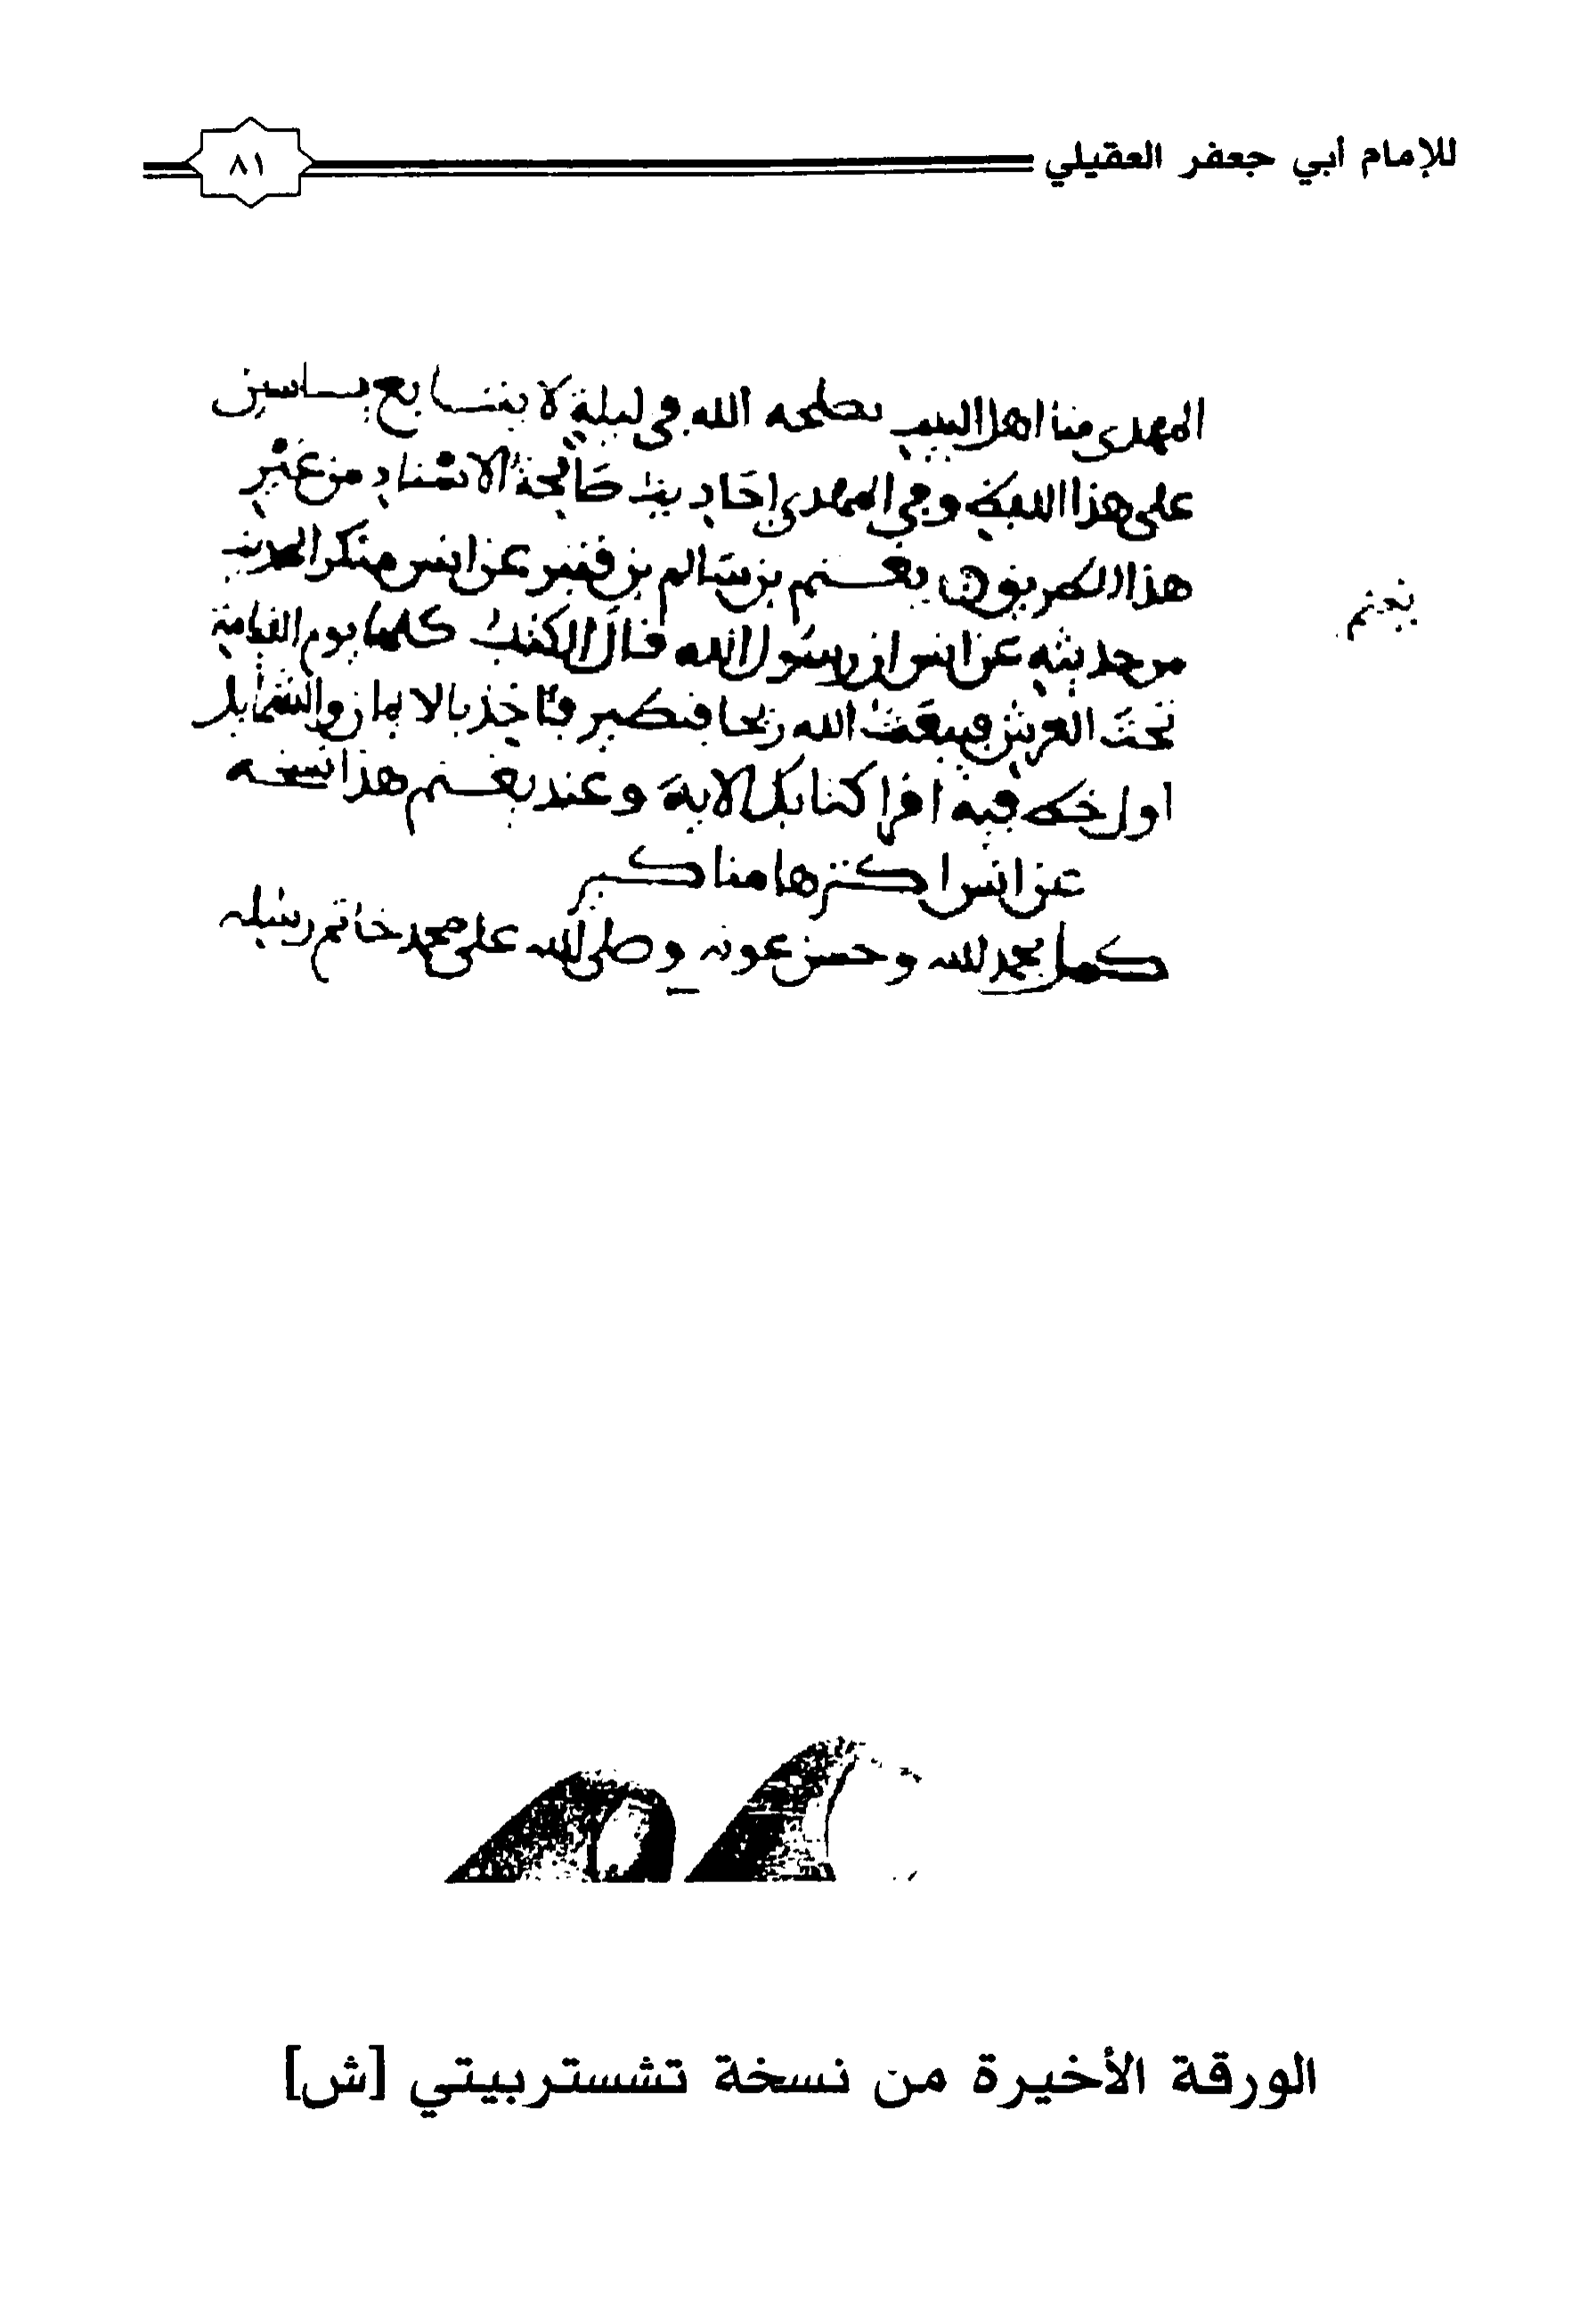 للإمام أبي جعفر العقيلي
٨١
المهدي منا اهل البيت يصلحه الله في ليلة لا يتابع ياسين
على هذا اللفظ وفي المهدي احاديث صالحة الاسناد من غير
هذا الطريق يغنم بن سالم بن قنبر عن انس منكر الحديث
يغنم
من حديثه عن انس ان رسول الله قال الكتب كلها يوم القيامة
تحت العرش فيبعث الله ريحا فتطير فتاخذ بالايمان والشمايل
اول خط فيه اقرا كتابك الاية وعند يغنم هذا نسخه
عن انس اكثرها مناكير
كمل بحمد الله وحسن عونه وصلى الله على محمد خاتم رسله
الورقة الأخيرة من نسخة تشستربيتي [ش]